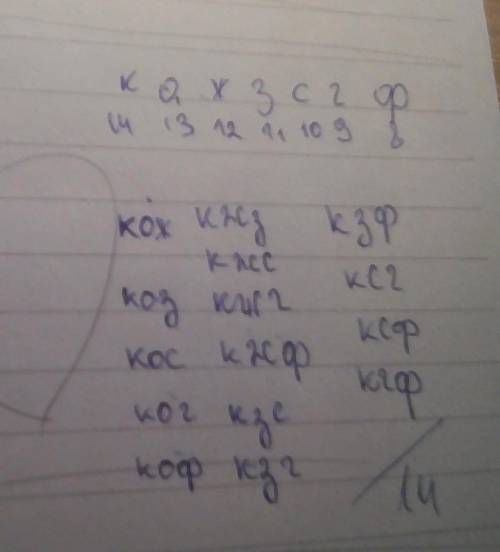 к о ж з с г ф
14 13 12 11 10 9 8
кож кжз кзф
кжс ксг
коз кжг
ксф
кос кжф
кгф
ког кзс
коф кзг
14